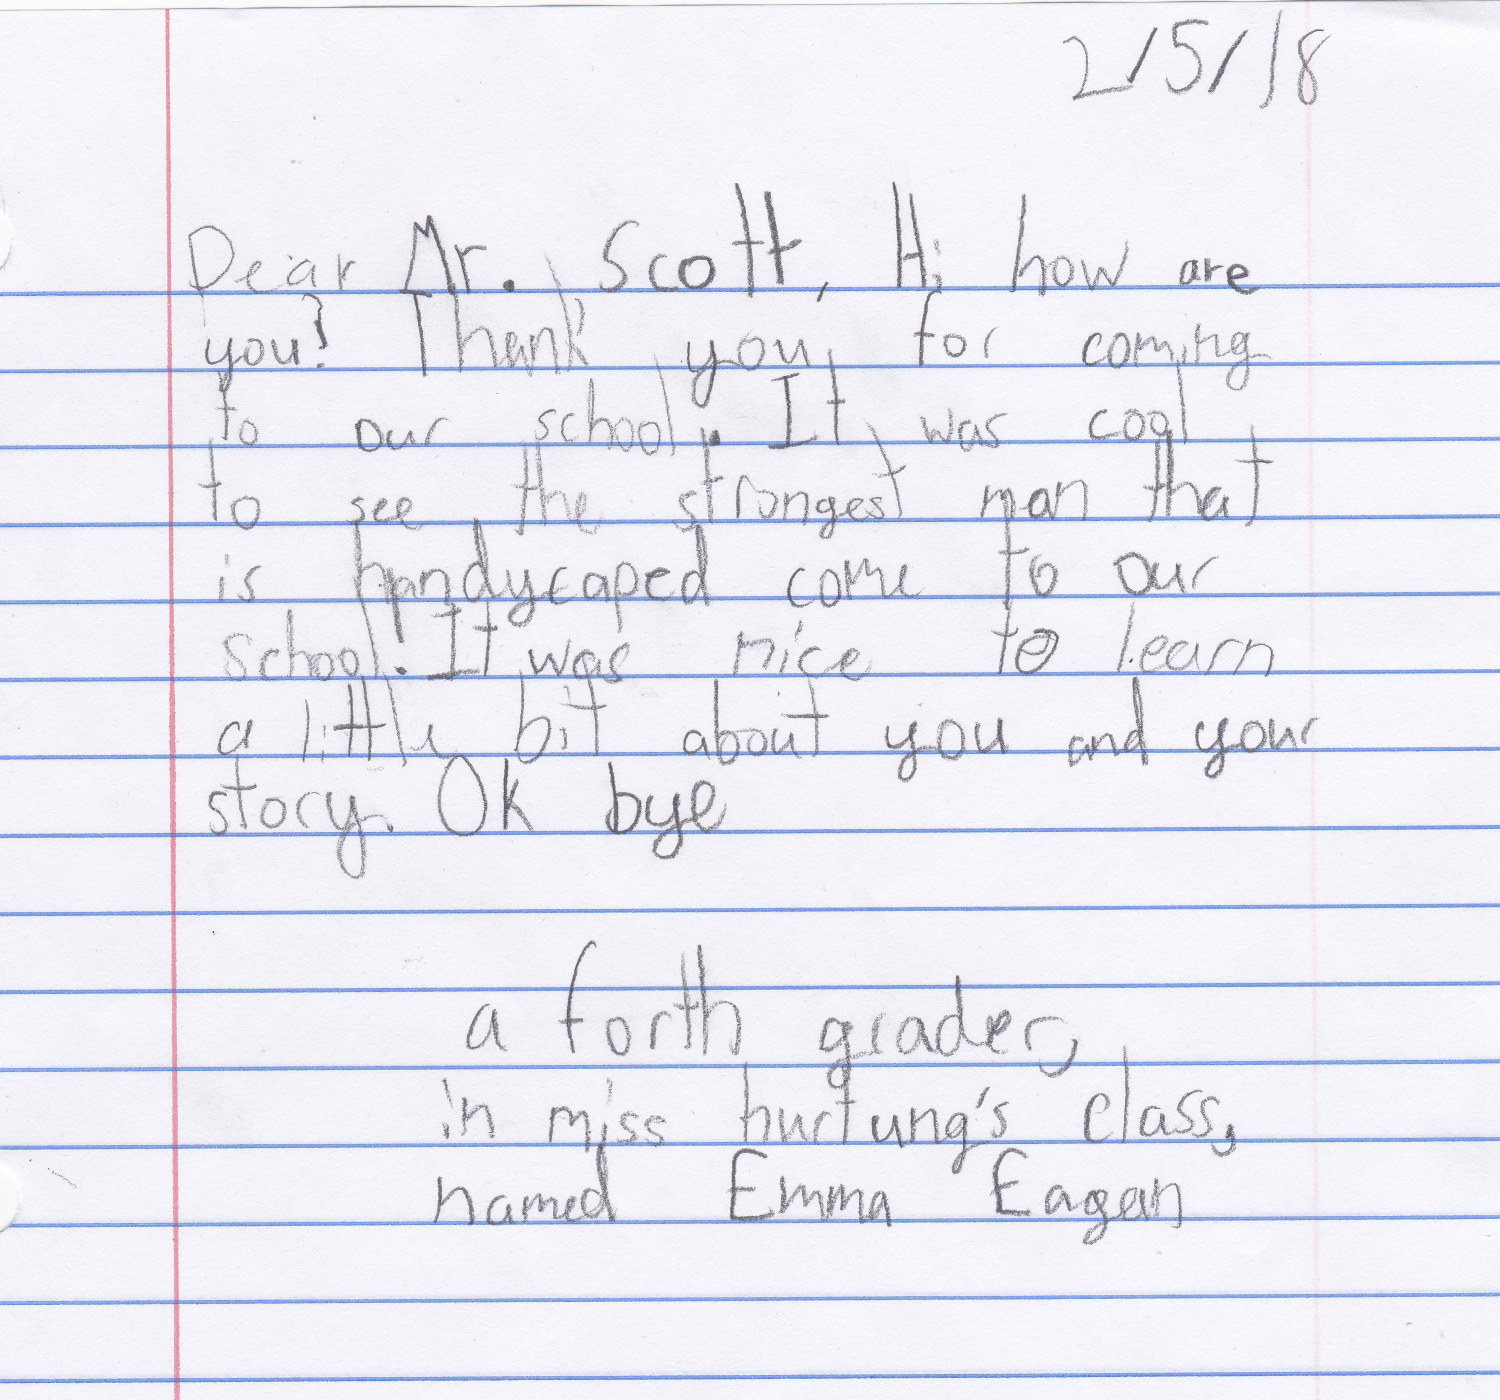 2/5/18
Dear Mr. Scott, Hi how are
you? Thank you for coming
to our school. It was cool
to see the strongest man that
is handycaped come to our
school. It was nice to learn
a little bit about you and your
story. Ok bye
a forth grader,
in miss hurtung's class,
named Emma Eagan